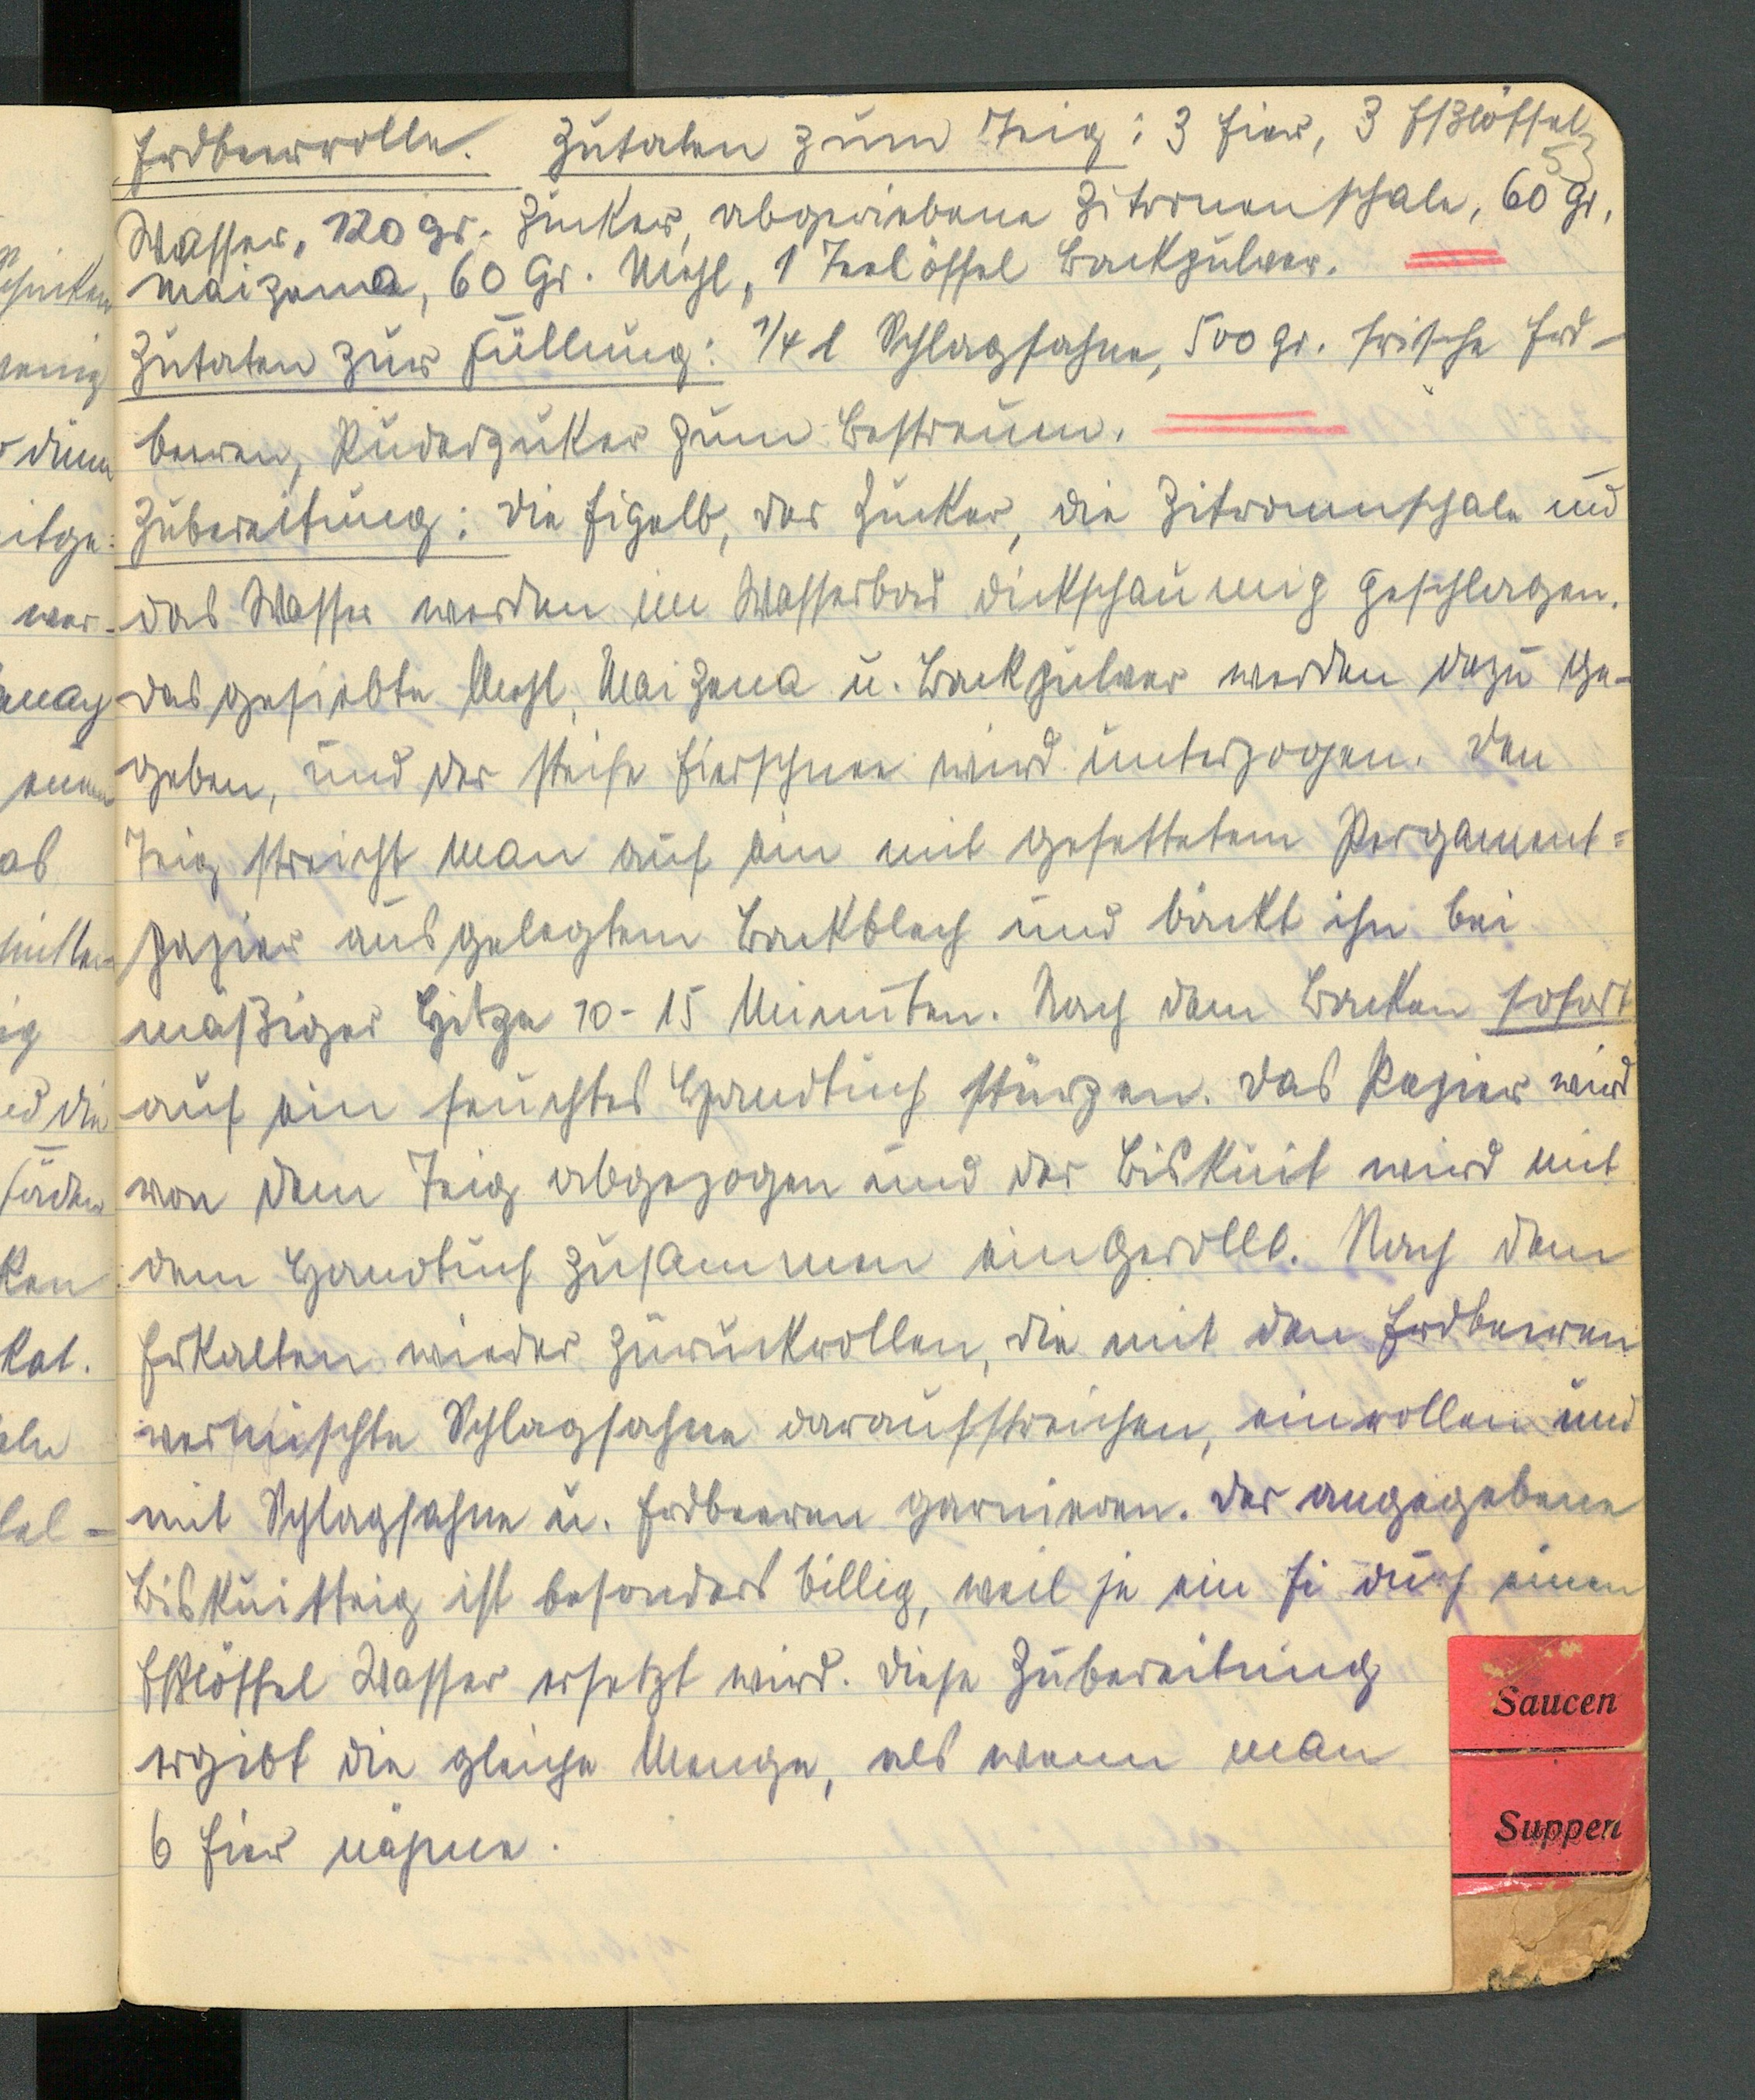 Erdbeerrolle. Zutaten zum Teig: 3 Eier, 3 Eßlöffel
53
Wasser, 120 gr. Zucker, abgeriebene Zitronenschale, 60 gr.
Maizena, 60 Gr. Mehl, 1 Teelöffel Backpulver.
Zutaten zur Füllung: 1/4 l Schlagsahne, 500 gr. frische Erd-
beeren, Puderzuker zum Bestreuen.
Zubereitung: Die Eigelb, der Zucker, die Zitronenschale und
das Wasser werden im Wasserbad dickschaumig geschlagen.
Das gesiebte Mehl, Maizena u. Backpulver werden dazu ge-
geben, und der steife Eierschnee wird unterzogen. Den
Teig streicht man auf ein mit gefettetem Pergament=
papier ausgelegtem Backblech und bäckt ihn bei
mäßiger Hitze 10-15 Minuten. Nach dem Backen sofort
auf ein feuchtes Handtuch stürzen. Das Papier wird
von dem Teig abgezogen und der Biskuit wird mit
dem Handtuch zusammen eingerollt. Nach dem
Erkalten wieder zurückrollen, die mit den Erdbeeren
vermischte Schlagsahne daraufstreichen, einrollen und
mit Schlagsahne u. Erdbeeren garnieren. Der angegebene
Biskuitteig ist besonders billig, weil je ein Ei durch einen
Eßlöffel Wasser ersetzt wird. Diese Zubereitung
ergibt die gleiche Menge, als wenn man
6 Eier nähme.
Saucen
Suppen
wenig
dünn
itge-
wer-
as
ig
die
Fäden
ken
kat.